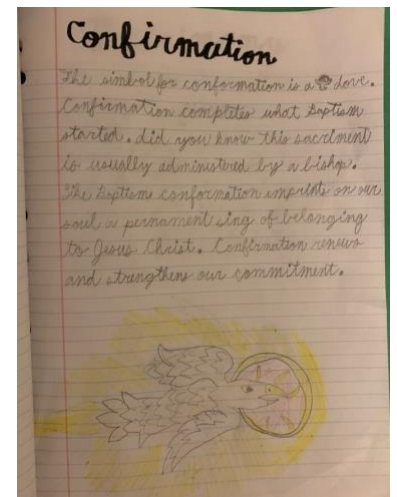 Confirmation
The simbol for conformation is a dove.
Confirmation completes what Baptism
started. did you know this sacriment
is usually administered by a bishop.
The Baptism conformation imprints on our
soul a pernament sing of belonging
to Jesus Christ. Confirmation renuws
and strengthens our commitment.